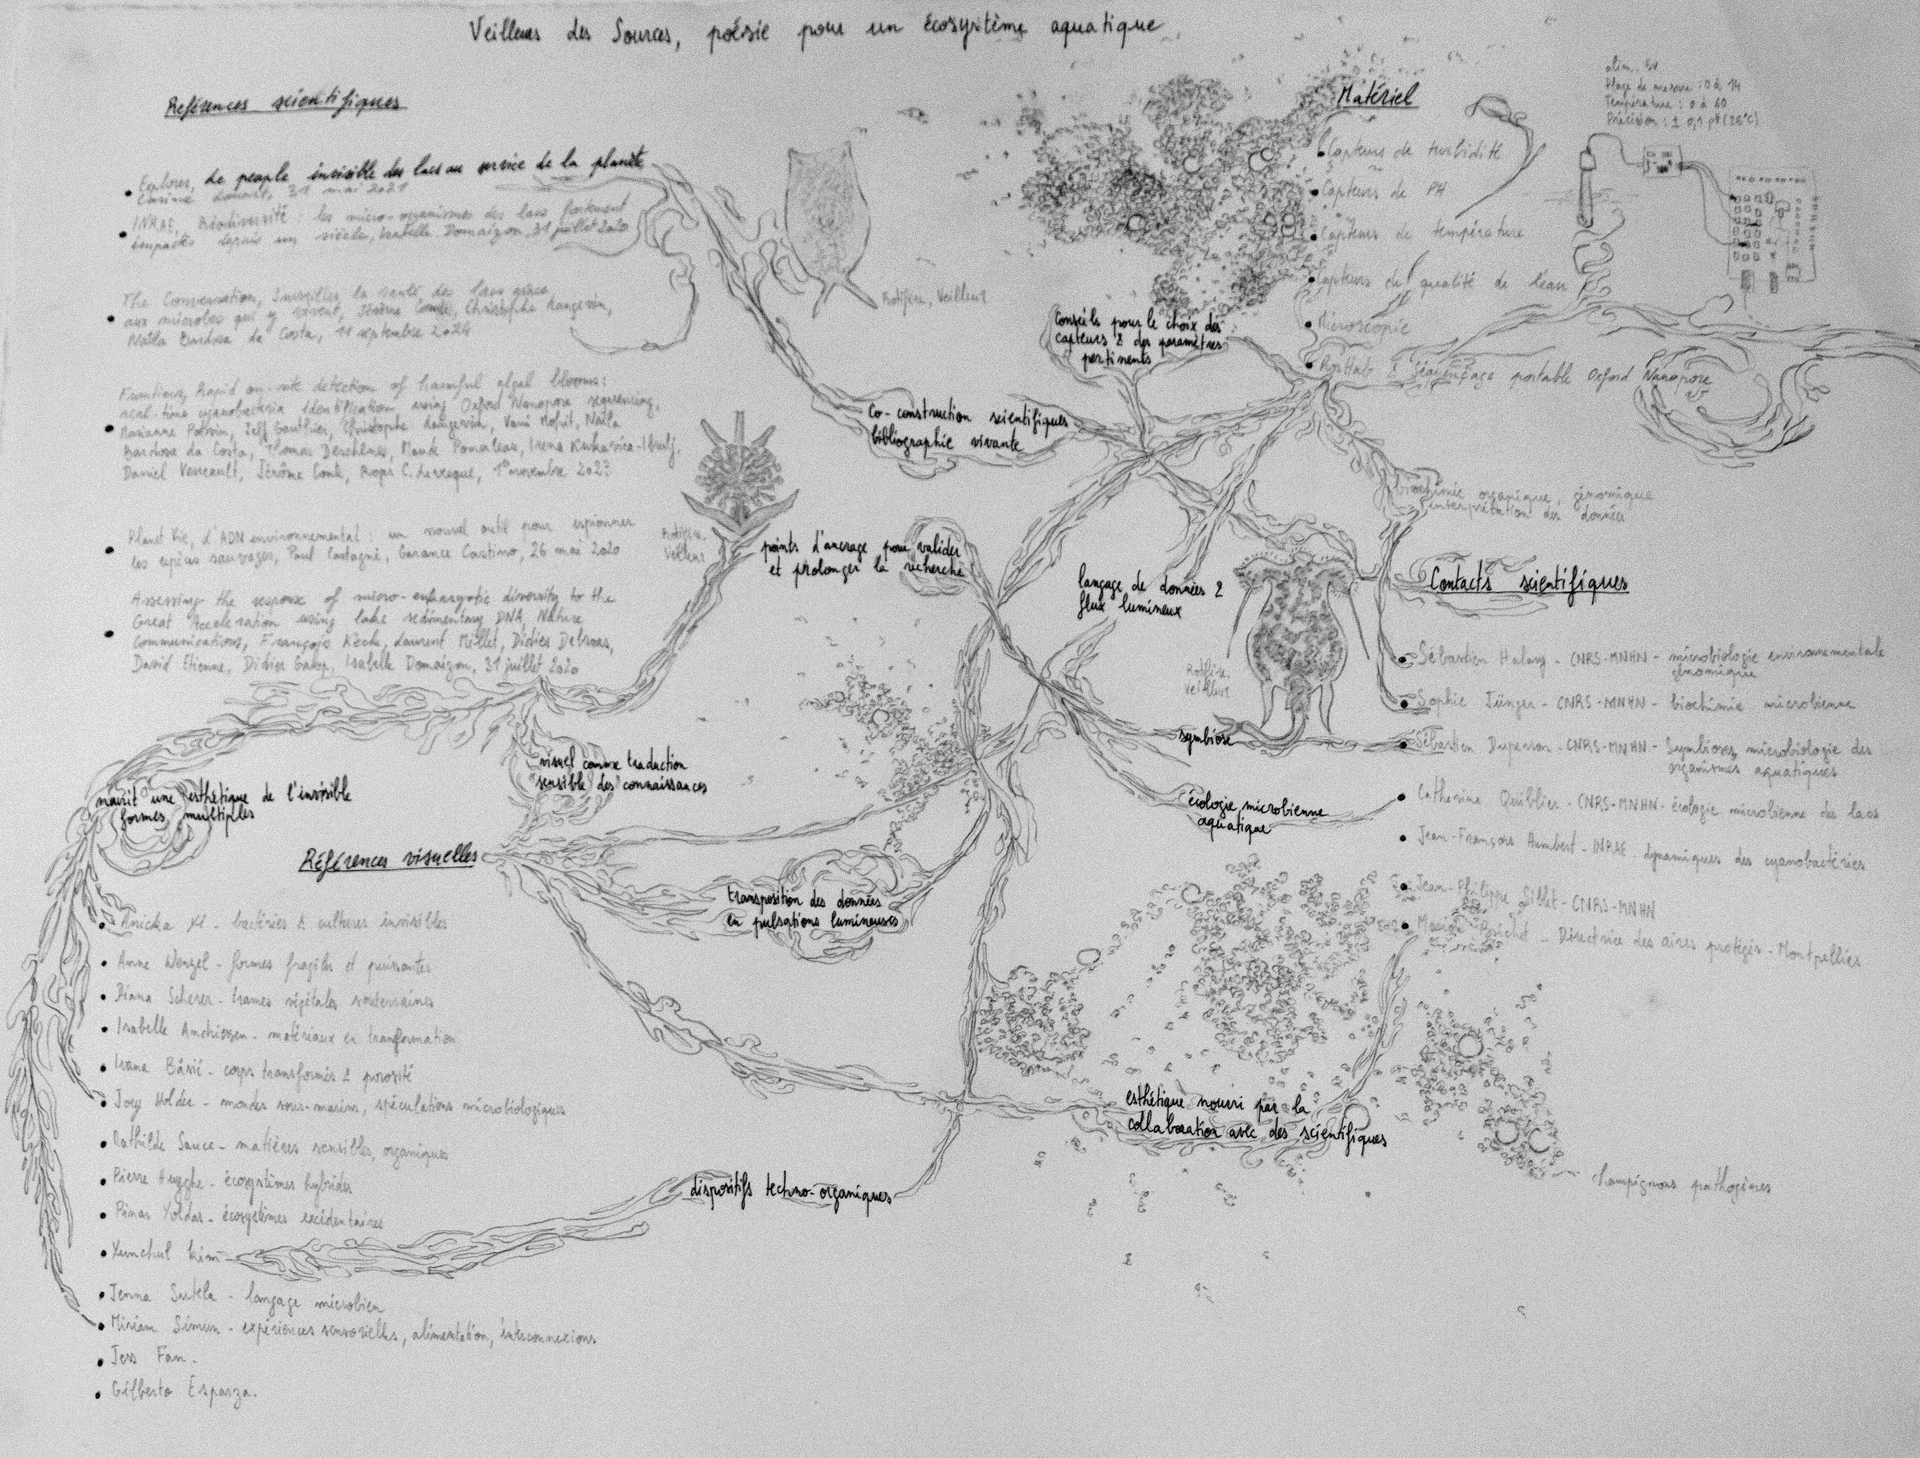 Veilleurs des Sources, poésie pour un écosystème aquatique
Références scientifiques
Explores, Le peuple invisible des lacs au service de la planète
31 mai 2021
INRAE, Biodiversité : les micro-organismes des lacs fortement
impactés depuis un siècle, Isabelle Domaizon, 31 juillet 2020
The Conversation, Surveiller la santé des lacs grâce
aux microbes qui y vivent, Jérôme Comte, Christophe Langevin,
Naïla Barbosa da Costa, 11 septembre 2024
Frontiers, Rapid on-site detection of harmful algal blooms:
real-time cyanobacteria identification using Oxford Nanopore sequencing,
Marianne Potvin, Jeff Gauthier, Christophe Langevin, Vani Mohit, Naïla
Barbosa da Costa, Thomas Deschênes, Maude Pomerleau, Irena Kukavica-Ibrulj,
Daniel Verreault, Jérôme Comte, Roger C. Levesque, 1er novembre 2023
Planet Vie, L'ADN environnemental : un nouvel outil pour espionner
les espèces sauvages, Paul Castagné, Garance Castino, 26 mai 2020
Assessing the response of micro-eukaryotic diversity to the
Great Acceleration using lake sedimentary DNA, Nature
Communications, François Keck, Laurent Millet, Didier Debroas,
David Etienne, Didier Galop, Isabelle Domaizon, 31 juillet 2020
nourit une esthétique de l'invisible
formes multiples
visuel comme traduction
sensible des connaissances
Références visuelles
Anicka Yi - bactéries & cultures invisibles
Anne Wenzel - formes fragiles et puissantes
Diana Scherer - trames végétales souterraines
Isabelle Andriessen - matériaux en transformation
Ivana Bašić - corps transformés & porosité
Joey Holder - mondes sous-marins, spéculations microbiologiques
Bathilde Sauce - matières sensibles, organiques
Pierre Huyghe - écosystèmes hybrides
Pinar Yoldas - écosystèmes excédentaires
Yunchul Kim
Jenna Sutela - langage microbien
Miriam Simun - expériences sensorielles, alimentation, interconnexions
Jess Fan.
Gilberto Esparza.
Rotifère, Veilleur
Rotifère,
Veilleur
points d'ancrage pour valider
et prolonger la recherche
co-construction scientifiques
bibliographie vivante
Conseils pour le choix des
capteurs & des paramètres
pertinents
langage de données &
flux lumineux
Rotifère,
Veilleur
symbiose
écologie microbienne
aquatique
transposition des données
en pulsations lumineuses
dispositifs techno-organiques
esthétique nourri par la
collaboration avec des scientifiques
champignons pathogènes
Matériel
Capteurs de turbidité
Capteurs de PH
Capteurs de température
Capteurs de qualité de l'eau
Microscopie
& Séquençage portable Oxford Nanopore
alim. 5V
Plage de mesure : 0 à 14
Température : 0 à 60
Précision : ± 0,1 pH (25°C)
biochimie organique, génomique
interprétation des données
Contacts scientifiques
Sébastien Halary - CNRS-MNHN - microbiologie environnementale
génomique
Sophie Jünger - CNRS-MNHN - biochimie microbienne
Sébastien Duperron - CNRS-MNHN - Symbioses, microbiologie des
organismes aquatiques
Catherine Quiblier - CNRS-MNHN - écologie microbienne des lacs
Jean-François Humbert - INRAE - dynamiques des cyanobactéries
Jean-Philippe Siblet - CNRS-MNHN
- Directrice des aires protégés - Montpellier